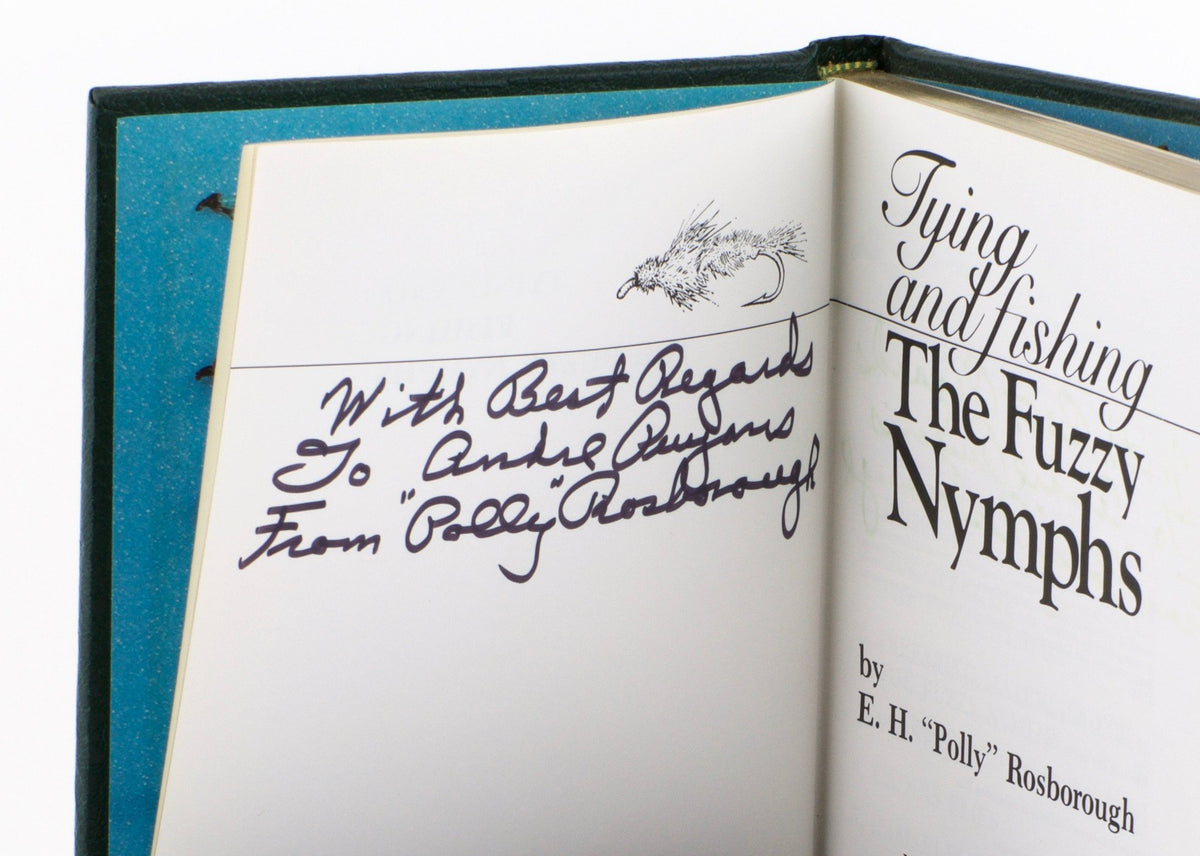 With Best Regards
To Andre Puyans
From "Polly" Rosborough
Tying
and fishing
The Fuzzy
Nymphs
by
E. H. “Polly” Rosborough